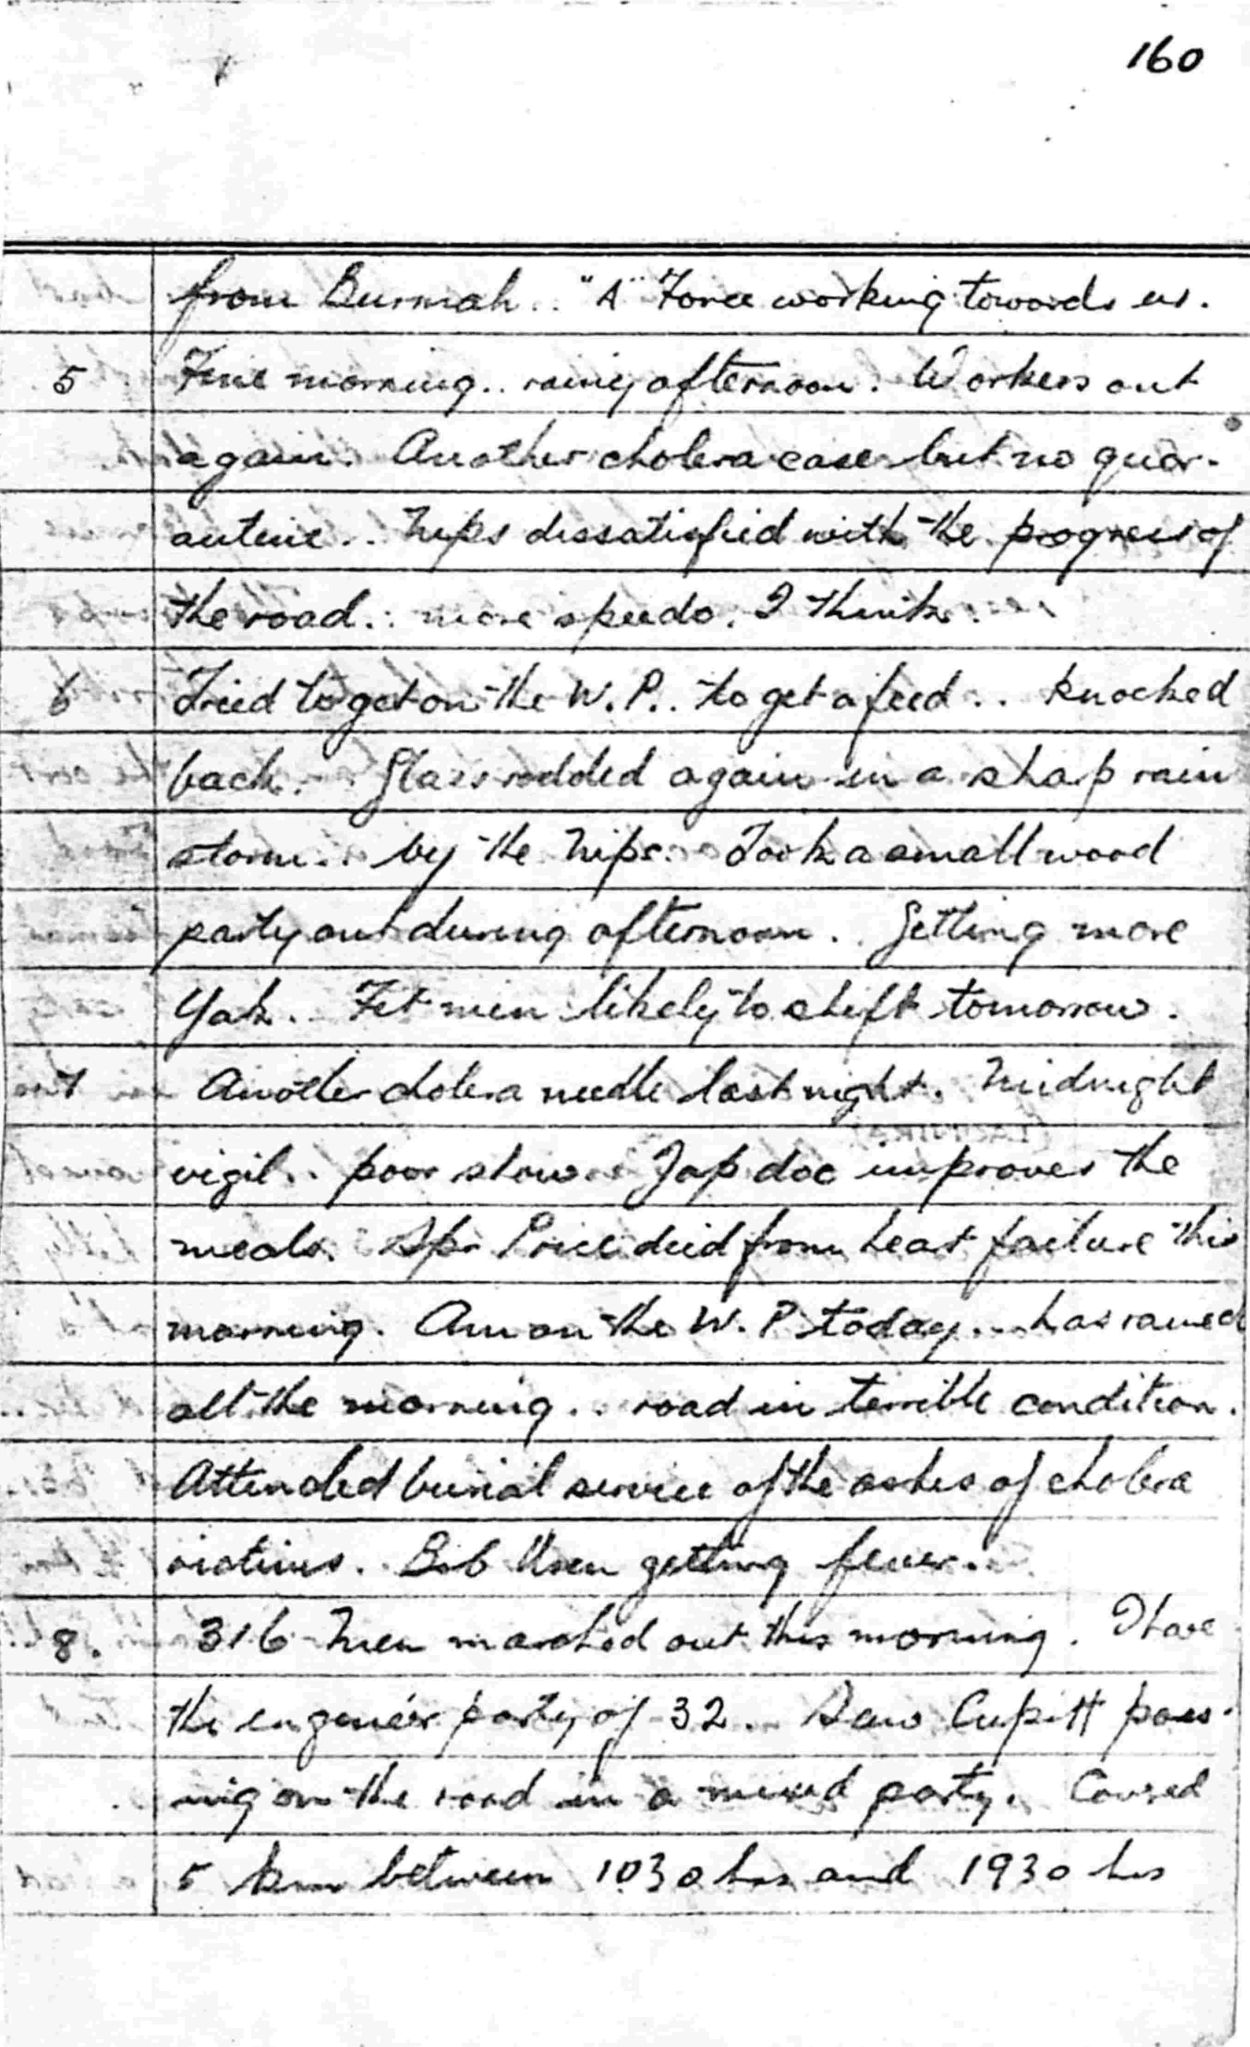 160
from Burmah.. "A" Force working towards us.
5 Fine morning.. rainy afternoon. Workers out
again. Another cholera case but no quar-
antine.. Nips dissatisfied with the progress of
the road.. more speedo. I think.
6 Tried to get on the W.P.. to get a feed.. knocked
back. Glass rodded again in a sharp rain
storm.. by the Nips. Took a small wood
party out during afternoon.. Getting more
Yak. Fit men likely to shift tomorrow.
7 Another cholera needle last night. Midnight
vigil.. poor show. Jap doc improves the
meals. Spr Price died from heart failure this
morning. Am on the W.P today... has rained
all the morning.. road in terrible condition.
Attended burial service of the ashes of cholera
victims. Bob getting fever.
8. 316 Men marched out this morning. I have
the engineer party of 32. Saw Cupitt pass-
ing on the road in a mixed party. Covered
5 km between 1030 hrs and 1930 hrs